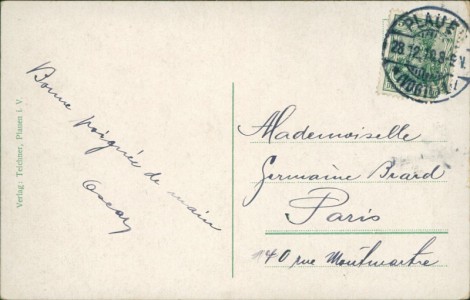 Verlag: Teichner, Plauen i. V.
Bonne poignée de main
Oscar
PLAUEN
28.12. 8-9 V.
(VOGTL.)
Mademoiselle
Germaine Brard
Paris
140 rue Montmartre